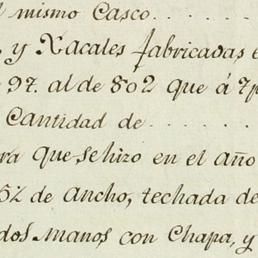 l mismo Casco........
y Xacales fabricadas e
97. al de 802 que á 7p
Cantidad de........
ra que se hizo en el año
5½ de Ancho, techada de
dos manos con Chapa, y